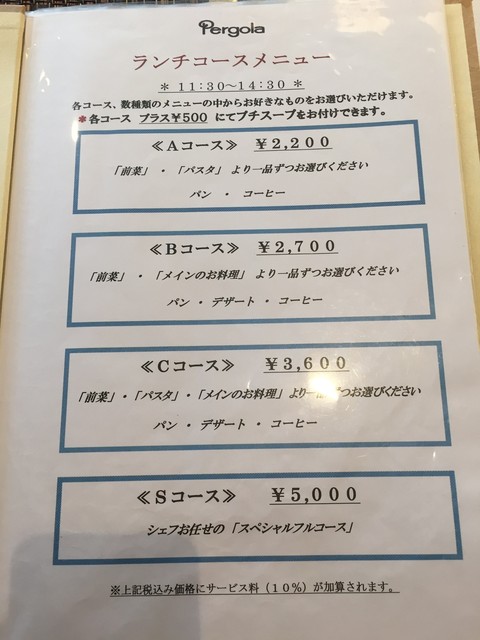 Pergola
ランチコースメニュー
＊ 11:30～14:30 ＊
各コース、数種類のメニューの中からお好きなものをお選びいただけます。
＊各コース プラス￥500 にてプチスープをお付けできます。
≪Aコース≫ ￥2,200
「前菜」・「パスタ」 より一品ずつお選びください
パン ・ コーヒー
≪Bコース≫ ￥2,700
「前菜」・「メインのお料理」 より一品ずつお選びください
パン ・ デザート ・ コーヒー
≪Cコース≫ ￥3,600
「前菜」・「パスタ」・「メインのお料理」 より一品ずつお選びください
パン ・ デザート ・ コーヒー
≪Sコース≫ ￥5,000
シェフお任せの「スペシャルフルコース」
※上記税込み価格にサービス料（10％）が加算されます。